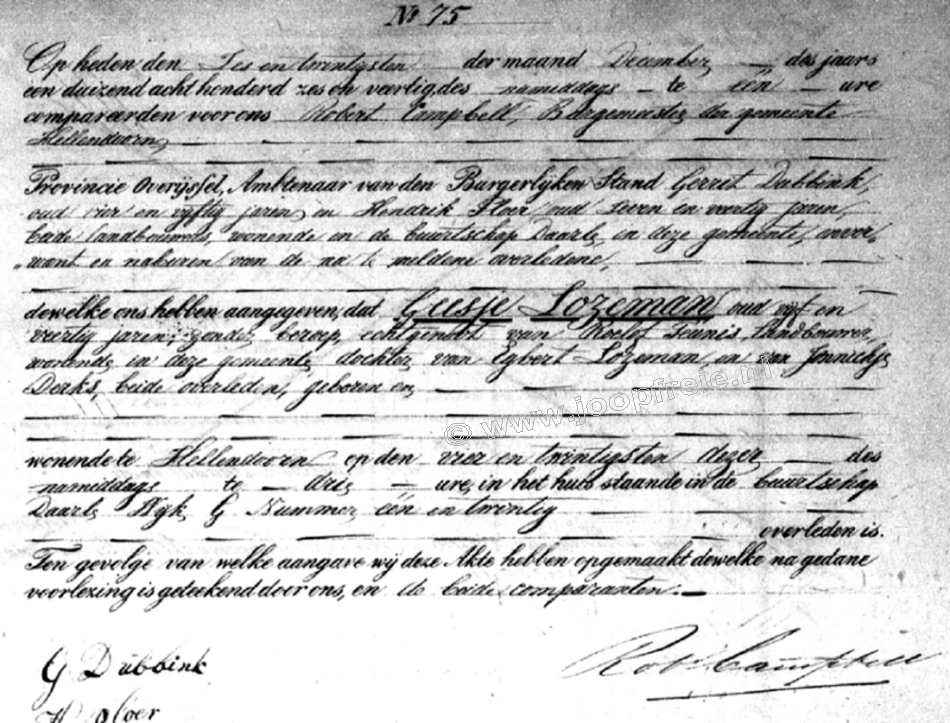 No 75
Op heden den Zes en twintigsten der maand December, des jaars
een duizend acht honderd zes en veertig, des namiddags te één ure
compareerden voor ons Robert Campbell, Burgemeester der gemeente
Hellendoorn,
Provincie Overijssel, Ambtenaar van den Burgerlijken Stand Gerrit Dubbink,
oud vier en vyftig jaren, en Hendrik Ploer oud zeven en veertig jaren,
beide landbouwers, wonende in de buurtschap Daarle, in deze gemeente,
en naburen van de na te meldene overledene,
dewelke ons hebben aangegeven, dat Geesje Lozeman, oud vyf en
veertig jaren, zonder beroep, echtgenoot van Roelof Teunis, Landbouwer,
wonende in deze gemeente, dochter van Egbert Lozeman, en van Jennichje
Derks, beide overleden, geboren en,
© www.joopfreie.nl
wonende te Hellendoorn op den vier en twintigsten dezer des
namiddags te drie ure, in het huis staande in de buurtschap
Daarle Wyk G Nummer één en twintig
overleden is.
Ten gevolge van welke aangave wij deze Akte hebben opgemaakt dewelke na gedane
voorlezing is geteekend door ons, en de beide comparanten.
G Dubbink
Robt Campbell
H Ploer